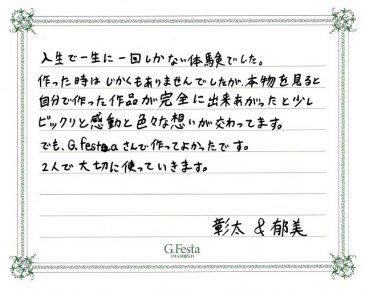 人生で一生に一回しかない体験でした。
作った時はじかくもありませんでしたが、本物を見ると
自分で作った作品が完全に出来あがったと少し
ビックリと感動と色々な想いが交わってます。
でも、G.festaさんで作ってよかったです。
2人で大切に使っていきます。
彰太 & 郁美
G.Festa
DIAMOND